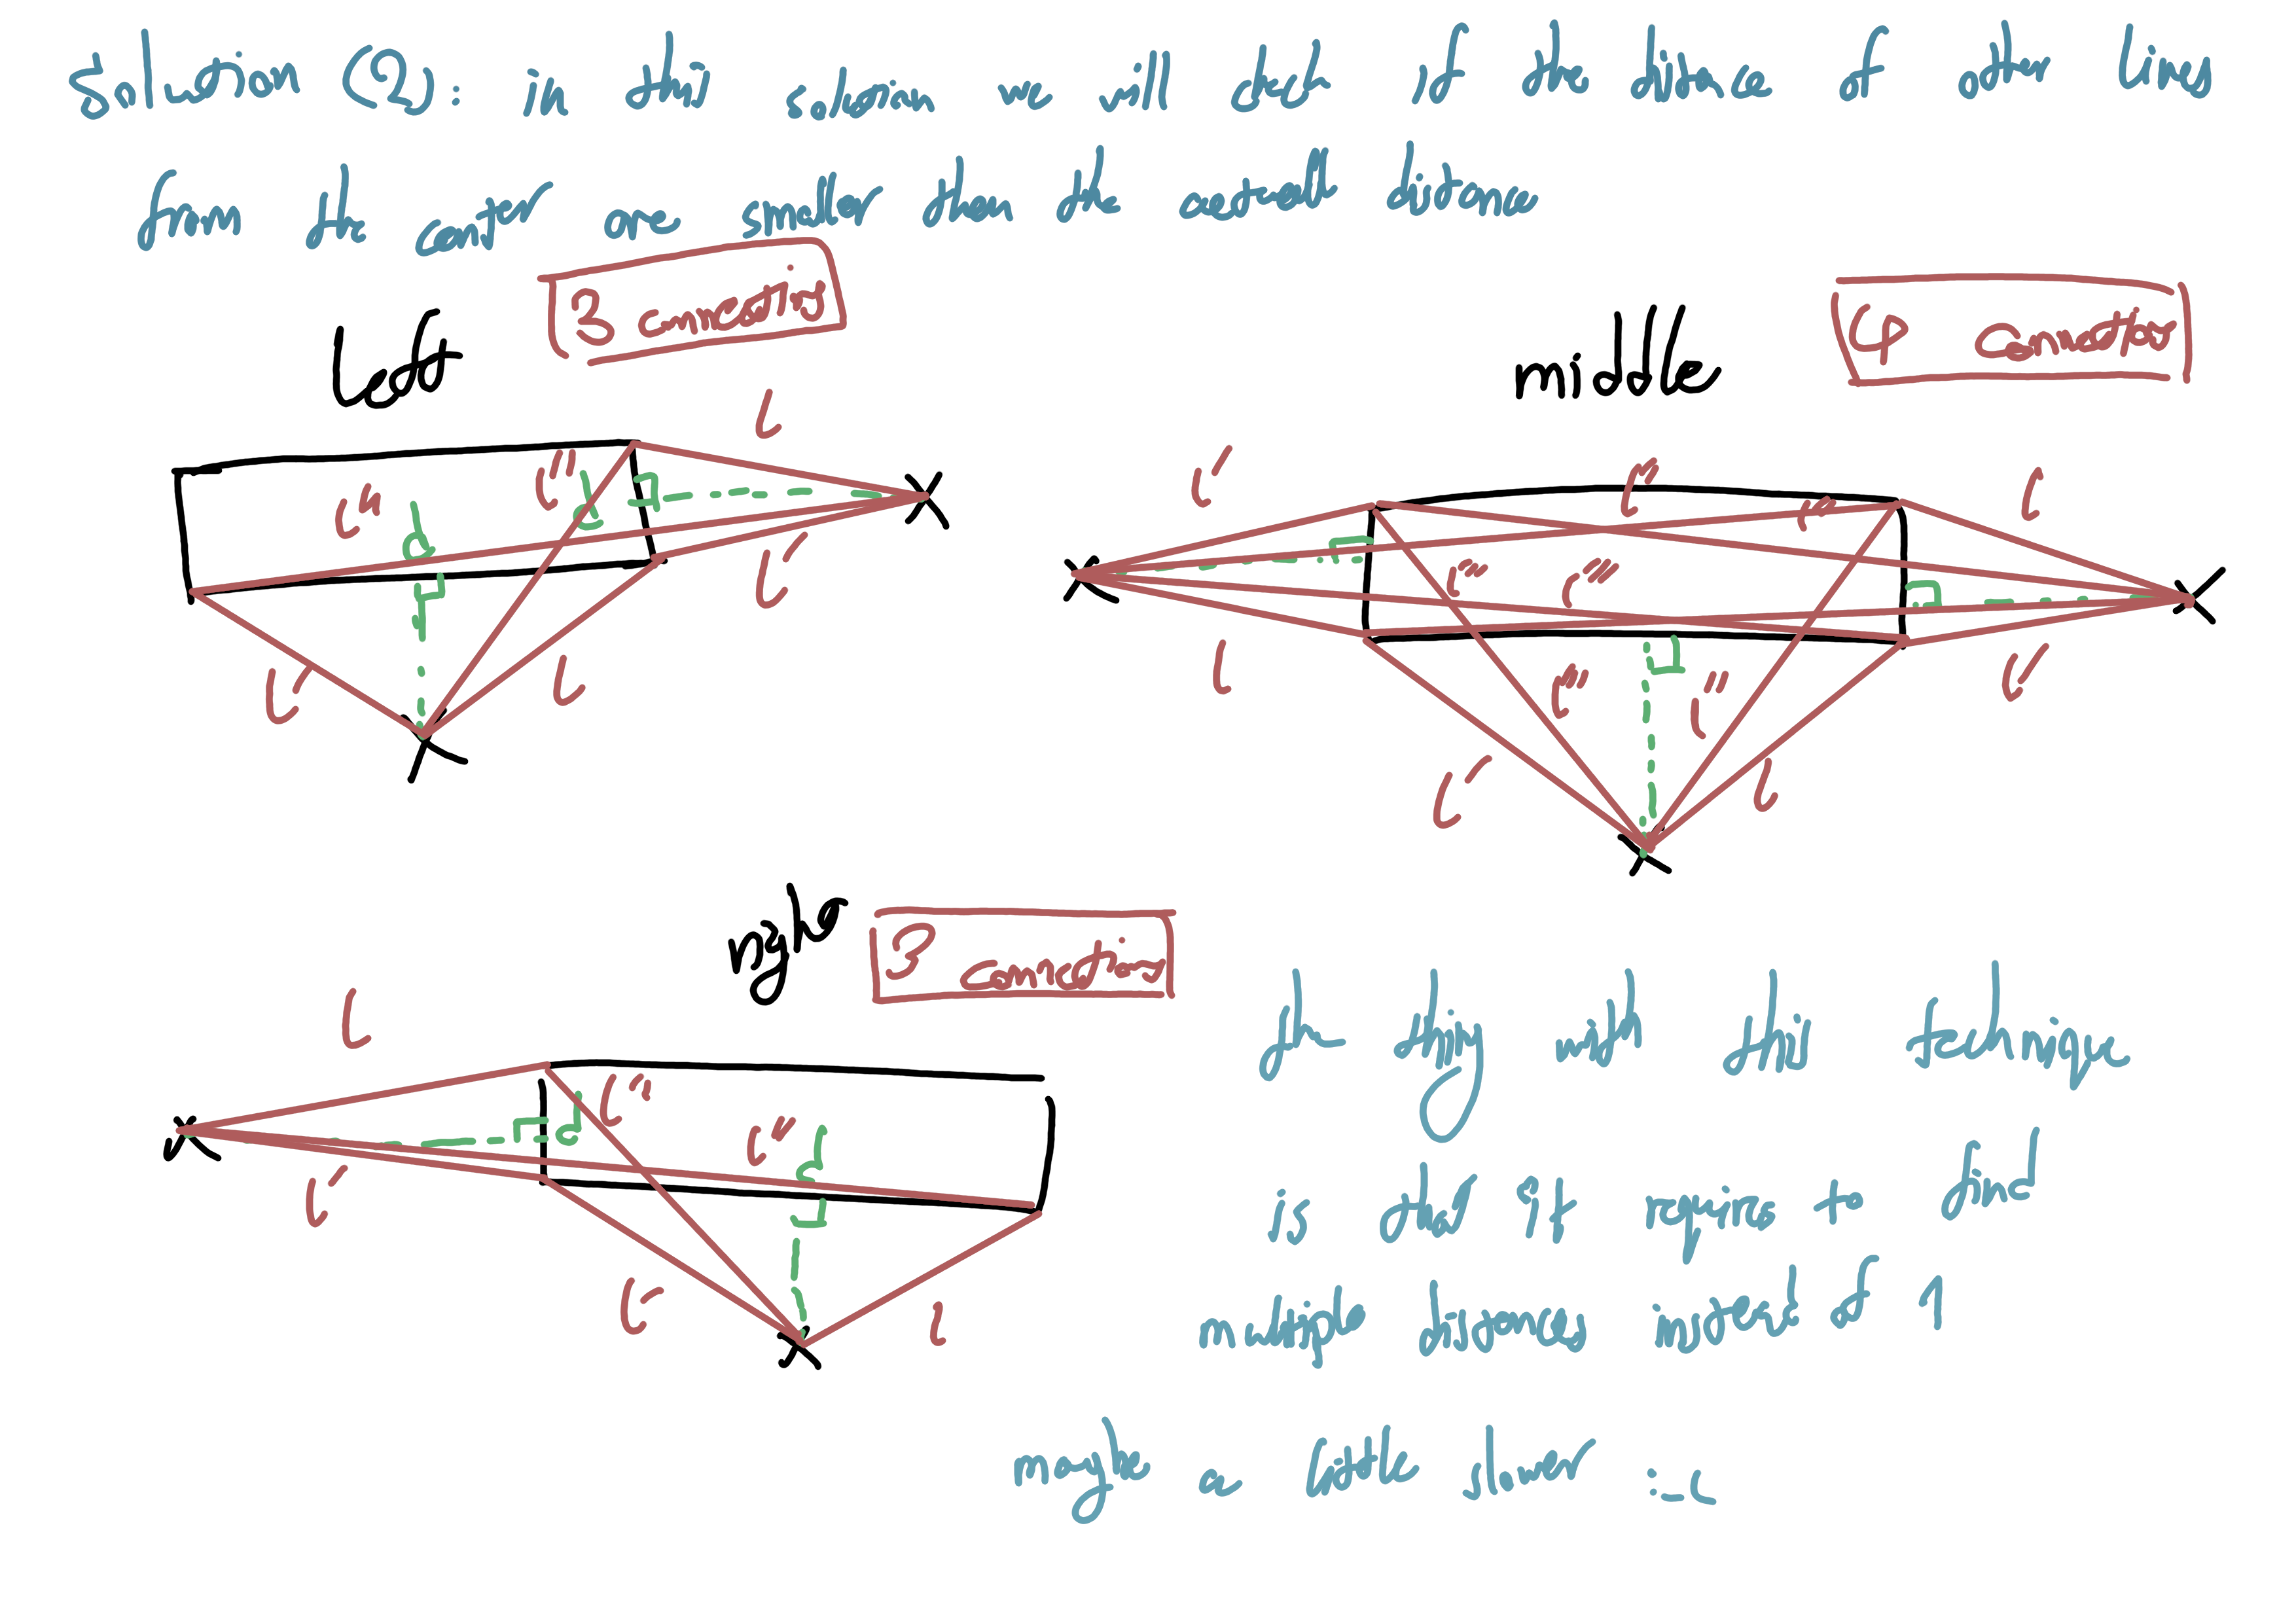 Solution (2): in this solution we will check if the distance of other lines
from the center are smaller then the actuall distance
3 connections
4 connections
left
middle
l
l'
l''
l'''
l''
l'''
l
l''
l'''
d
d
l'
l'''
l''''
l
l'
l'''
l''
l'
l
l'
l
l'
l
right
3 connections
l
the thing with this technique
l''
d
l''
d
is that it requires to find
l'
l'
l
multiple distances instead of 1
maybe a little slower :-c